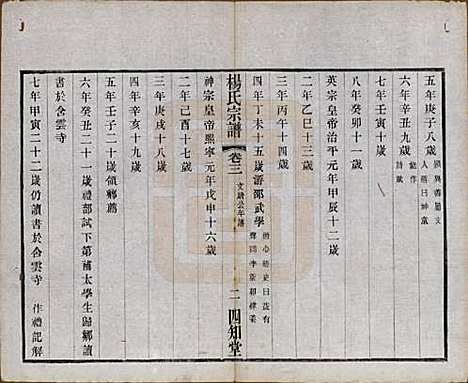 五年庚子八歲
六年辛丑九歲 能作詩賦
七年壬寅十歲
八年癸卯十一歲
英宗皇帝治平元年甲辰十二歲
二年乙巳十三歲
三年丙午十四歲
四年丁未十五歲游邵武學
楊氏宗譜 卷三 文靖公年譜 二 四知堂
神宗皇帝熙寧元年戊申十六歲
二年己酉十七歲
三年庚戌十八歲
四年辛亥十九歲
五年壬子二十歲領鄉薦
六年癸丑二十一歲禮部試下第補太學生歸鄉讀
書於含雲寺
七年甲寅二十二歲仍讀書於含雲寺 作禮記解